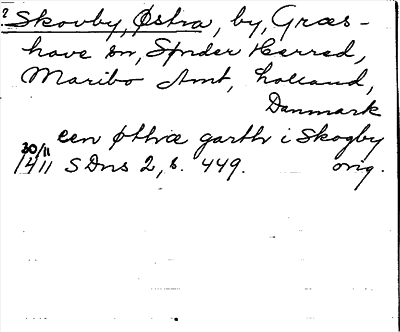 ? Skovby, Østra, by, Græs-
have sn, Sønder Herred,
Maribo Amt, Lolland,
Danmark
een øthræ garth i Skogby
30/11
1411 SDns 2, s. 449. orig.